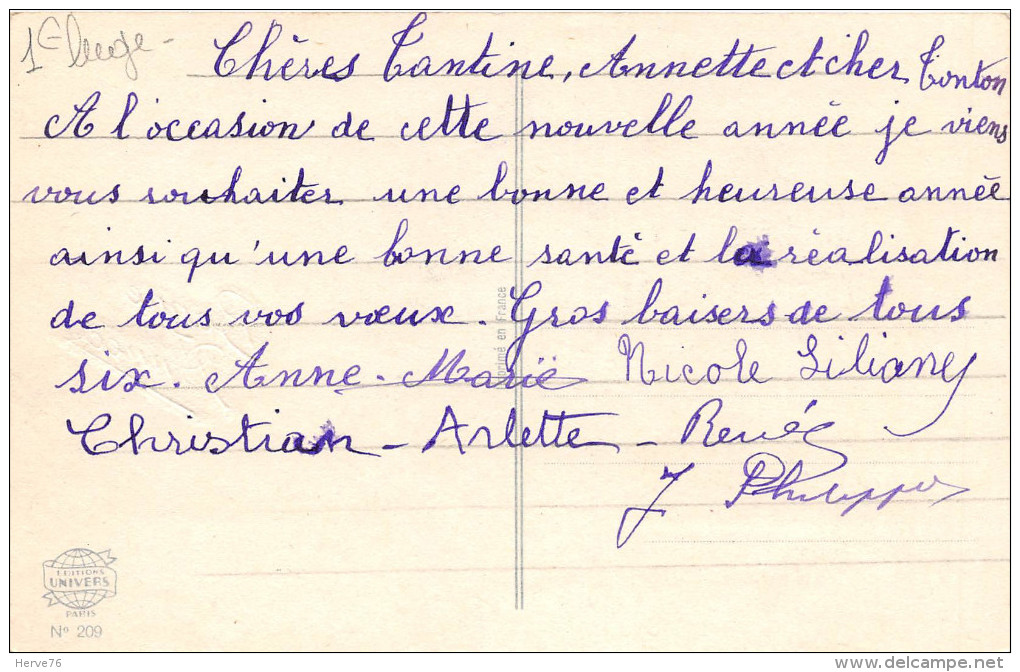 1€ luge -
Chères Tantine, Annette et cher Tonton
A l'occasion de cette nouvelle année je viens
vous souhaiter une bonne et heureuse année
ainsi qu'une bonne santé et la réalisation
de tous vos vœux. Gros baisers de tous
six. Anne-Marie Nicole Liliane
Christian - Arlette - Renée
J Philippe
Imprimé en France
EDITIONS
UNIVERS
PARIS
Nº 209
Herve76
www.delcampe.net